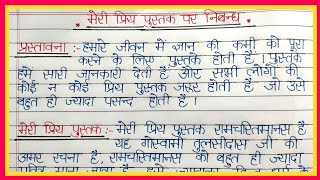 मेरी प्रिय पुस्तक पर निबन्ध
प्रस्तावना :- हमारे जीवन में ज्ञान की कमी को पूरा
करने के लिए पुस्तक होती है। पुस्तक
हमे सारी जानकारी देती है और सभी लोगों की
कोई न कोई प्रिय पुस्तक जरूर होती है, जो उसे
बहुत ही ज्यादा पसन्द होती है।
मेरी प्रिय पुस्तक:- मेरी प्रिय पुस्तक रामचरितमानस है
यह गोस्वामी तुलसीदास जी की
अमर रचना है, रामचरितमानस को बहुत ही ज्यादा